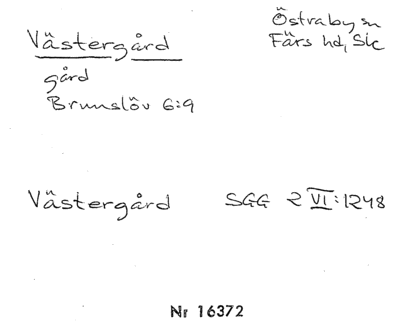 Västergård
Östraby sn
Färs hd, Sk
gård
Brunslöv 6:9
Västergård SGG 2 VI:1248
Nr 16372